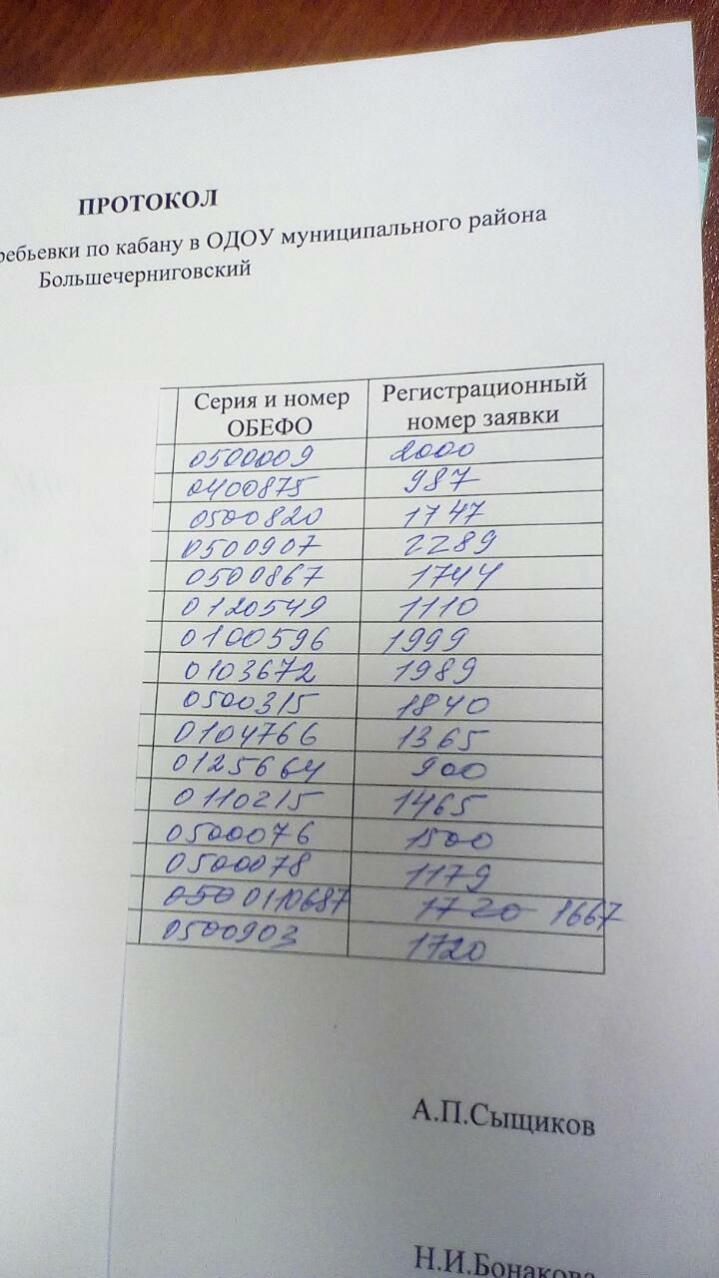 ПРОТОКОЛ
ребьевки по кабану в ОДОУ муниципального района
Большечерниговский
Серия и номер ОБЕФО Регистрационный номер заявки
0500009 2000
0400875 987
0500820 1747
0500907 2289
0500867 1744
0120549 1110
0100596 1999
0103672 1989
0500315 1840
0104766 1365
0125664 900
0110215 1465
0500076 1500
0500078 1179
050 0110687 1720 1667
0500903 1720
А.П.Сыщиков
Н.И.Бонакова